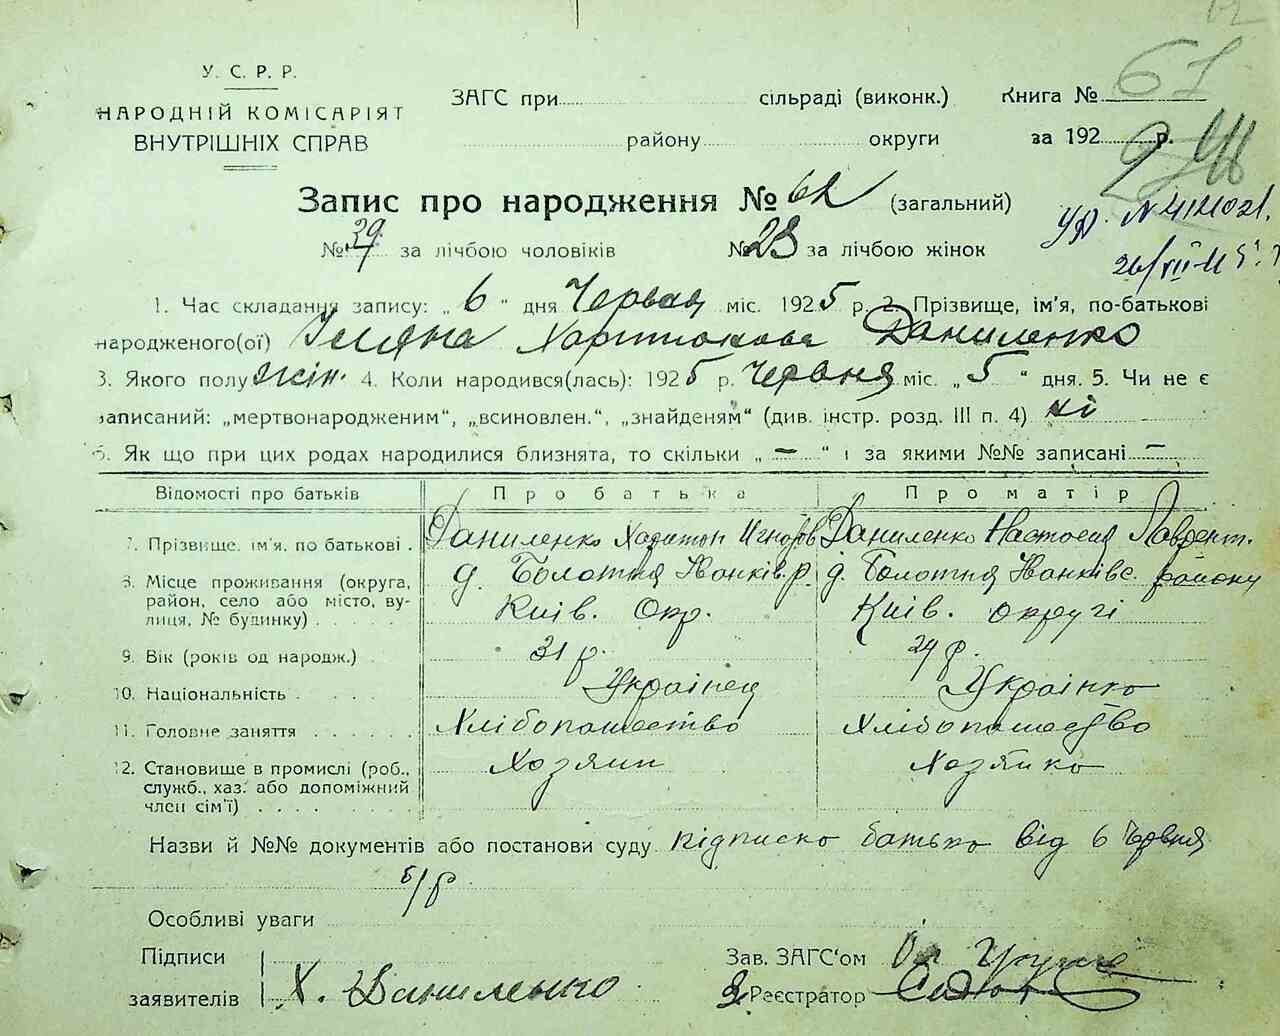 У. С. Р. Р.
НАРОДНІЙ КОМІСАРІЯТ
ВНУТРІШНІХ СПРАВ
ЗАГС при сільраді (виконк.) Книга № 61
району округи за 192 р.
Запис про народження № 62 (загальний)
№ 39 за лічбою чоловіків № 23 за лічбою жінок
1. Час складання запису: „ 6 " дня Червня міс. 1925 р. 2. Прізвище, ім'я, по-батькові
народженого(ої) Харитонова Даниленко
3. Якого полу жін. 4. Коли народився(лась): 1925 р. Червня міс. „ 5 " дня. 5. Чи не є
записаний: „мертвонародженим", „всиновлен.", „знайденям" (див. інстр. розд. III п. 4) ні
6. Як що при цих родах народилися близнята, то скільки „ — " і за якими №№ записані —
Відомості про батьків Про батька Про матір
7. Прізвище, ім'я, по батькові . Даниленко Харитон Даниленко Настосия Лаврент.
8. Місце проживання (округа, д. Болотня Іванків. р. д. Болотня Іванківс. району
район, село або місто, ву-
лиця, № будинку) . . . . Київ. Окр. Київ. округі
9. Вік (років од народж.) 31 р. 24 р.
10. Національність . . . . Українец Українко
11. Головне заняття . . . . . . Хлібопашество Хлібопашество
12. Становище в промислі (роб., Хозяин Хозяйко
служб., хаз. або допоміжний
член сім'ї) . . . .
Назви й №№ документів або постанови суду підписко батько від 6 Червня
б/р
Особливі уваги
Підписи Зав. ЗАГС'ом
заявителів Х. Даниленко Реєстратор